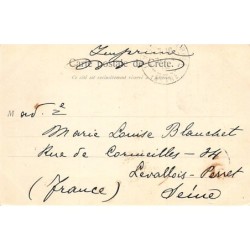 Imprimé
Carte postale de Crète.
Ce côté est exclusivement réservé à l'adresse.
M ad. 2e
Marie Louise Blanchet
Rue de Cormeilles - 34
Levallois-Perret
(France) Seine